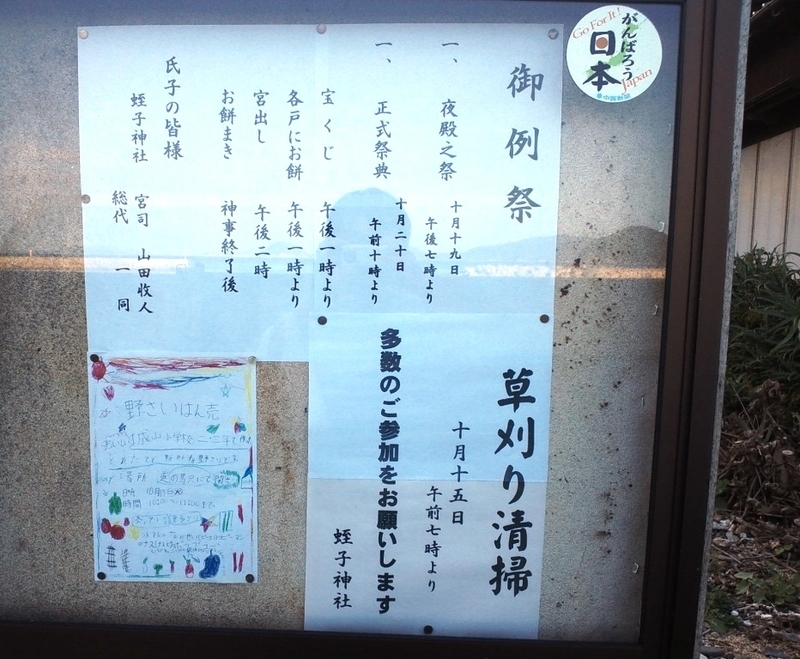 御例祭
一、夜殿之祭 十月十九日
午後七時より
一、正式祭典 十月二十日
午前十時より
宝くじ 午後一時より
各戸にお餅 午後一時より
宮出し 午後二時
お餅まき 神事終了後
氏子の皆様
蛭子神社 宮司 山田收人
総代 一同
草刈り清掃
十月十五日
午前七時より
多数のご参加をお願いします
蛭子神社
野さいはん売
Go For It!
がんばろう
日本
Japan